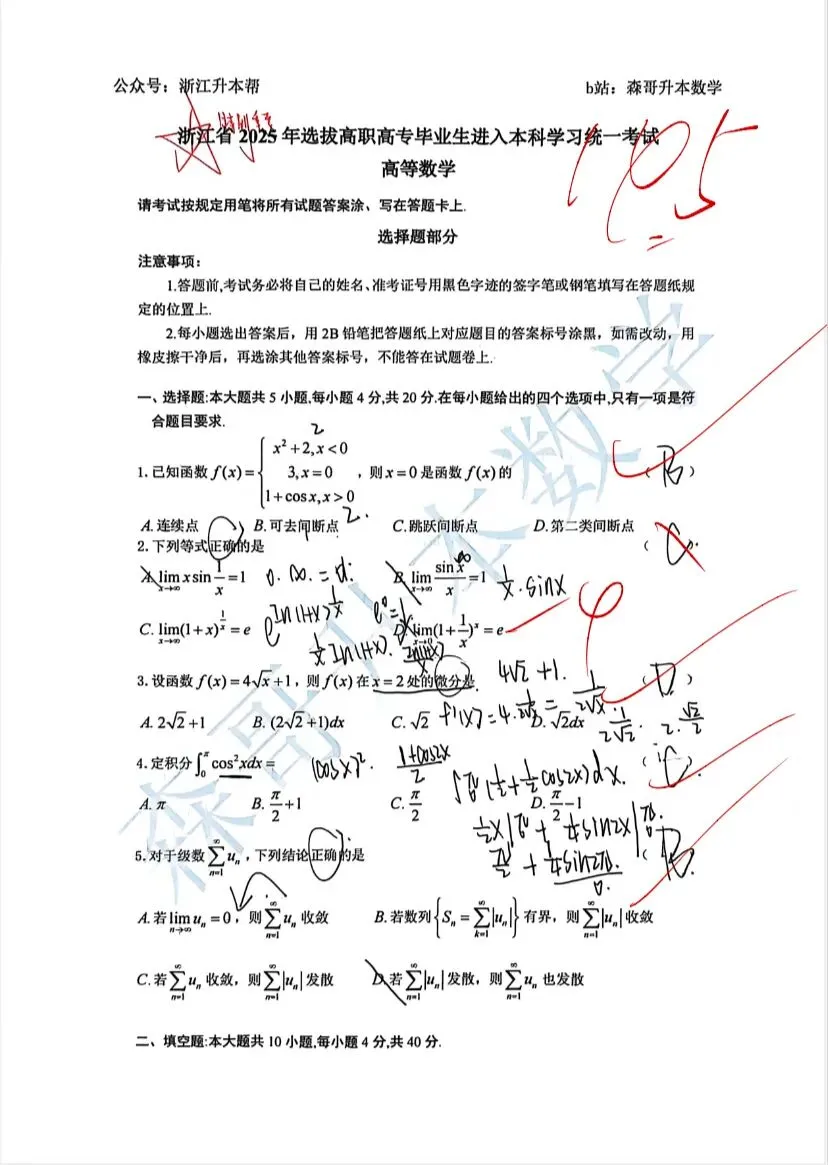 公众号：浙江升本帮
b站：森哥升本数学
特别重
浙江省 2025 年选拔高职高专毕业生进入本科学习统一考试
105
高等数学
请考试按规定用笔将所有试题答案涂、写在答题卡上.
选择题部分
注意事项：
1.答题前,考试务必将自己的姓名、准考证号用黑色字迹的签字笔或钢笔填写在答题纸规
定的位置上.
2.每小题选出答案后，用 2B 铅笔把答题纸上对应题目的答案标号涂黑，如需改动，用
橡皮擦干净后，再选涂其他答案标号，不能答在试题卷上.
一、选择题:本大题共 5 小题,每小题 4 分,共 20 分.在每小题给出的四个选项中,只有一项是符
合题目要求.
2
1.已知函数 f(x)={x²+2,x<0 3,x=0 1+cosx,x>0，则 x=0 是函数 f(x) 的 （ B ）
A.连续点 B.可去间断点 C.跳跃间断点 D.第二类间断点
2.
2.下列等式正确的是 （ C ）
A. lim x→∞ x sin 1/x =1 0·∞.= B. lim x→∞ sin x/x =1 1/x·sinx
C. lim x→∞ (1+x)^(1/x) = e e^(ln(1+x)^(1/x)) e⁰=1 D. lim x→0 (1+1/x)^x = e
1/x ln(1+x). ln(1+x)/x
4√2+1.
3.设函数 f(x)=4√x+1，则 f(x) 在 x=2 处的微分是 （ D ）
f'(x)=4·1/2√x= 1/2√x. 1/2√2. 2·√2/2
A. 2√2+1 B. (2√2+1)dx C. √2 D. √2dx
4.定积分 ∫₀^π cos²xdx= (cosx)². 1+cos2x/2 （ C ）
∫₀^π (1/2+1/2cos2x)dx.
A. π B. π/2+1 C. π/2 D. π/2−1
1/2x|₀^π + 1/4sin2x|₀^π.
π/2 + 1/4sin2π.
0.
5.对于级数 ∑ n=1 ∞ uₙ，下列结论正确的是 （ B ）
A.若 lim n→∞ uₙ=0，则 ∑ n=1 ∞ uₙ 收敛 B.若数列{Sₙ=∑ k=1 ∞ |uₙ|}有界，则 ∑ n=1 ∞ |uₙ| 收敛
C.若 ∑ n=1 ∞ uₙ 收敛，则 ∑ n=1 ∞ |uₙ| 发散 D.若 ∑ n=1 ∞ |uₙ| 发散，则 ∑ n=1 ∞ uₙ 也发散
二、填空题:本大题共 10 小题,每小题 4 分,共 40 分.
森哥升本数学